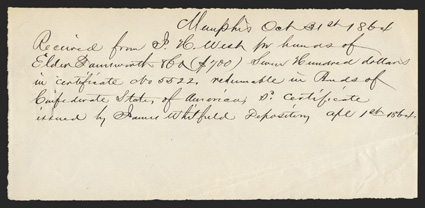 Memphis Oct 31st 1864
Received from J. H. West for hands of
Elder Farnsworth & Co ($700) Seven Hundred dollars
in certificate No 5522, returnable in Bonds of
Confederate States of America, Sd. Certificate
issued by Francis Whitfield Depositary Apl 1st 1864.